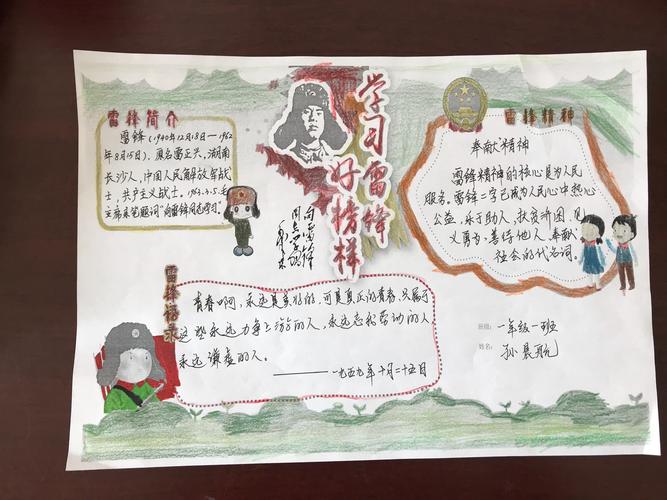 雷锋简介
雷锋(1940年12月18日—1962
年8月15日),原名雷正兴,湖南
长沙人,中国人民解放军战
士,共产主义战士。1963.3.5.毛
主席亲笔题词"向雷锋同志学习"
学习雷锋
好榜样
向雷锋
同志学习
毛泽东
雷锋精神
奉献精神
雷锋精神的核心是为人民
服务。雷锋二字已成为人民心中热心
公益,乐于助人,扶贫济困,见
义勇为,善待他人,奉献
社会的代名词。
雷锋语录
青春啊,永远是美好的,可是真正的青春,只属于
这些永远力争上游的人,永远忘我劳动的人
永远谦虚的人。
——一九五九年十月二十五日
班级: 一年级一班
姓名: 孙晨